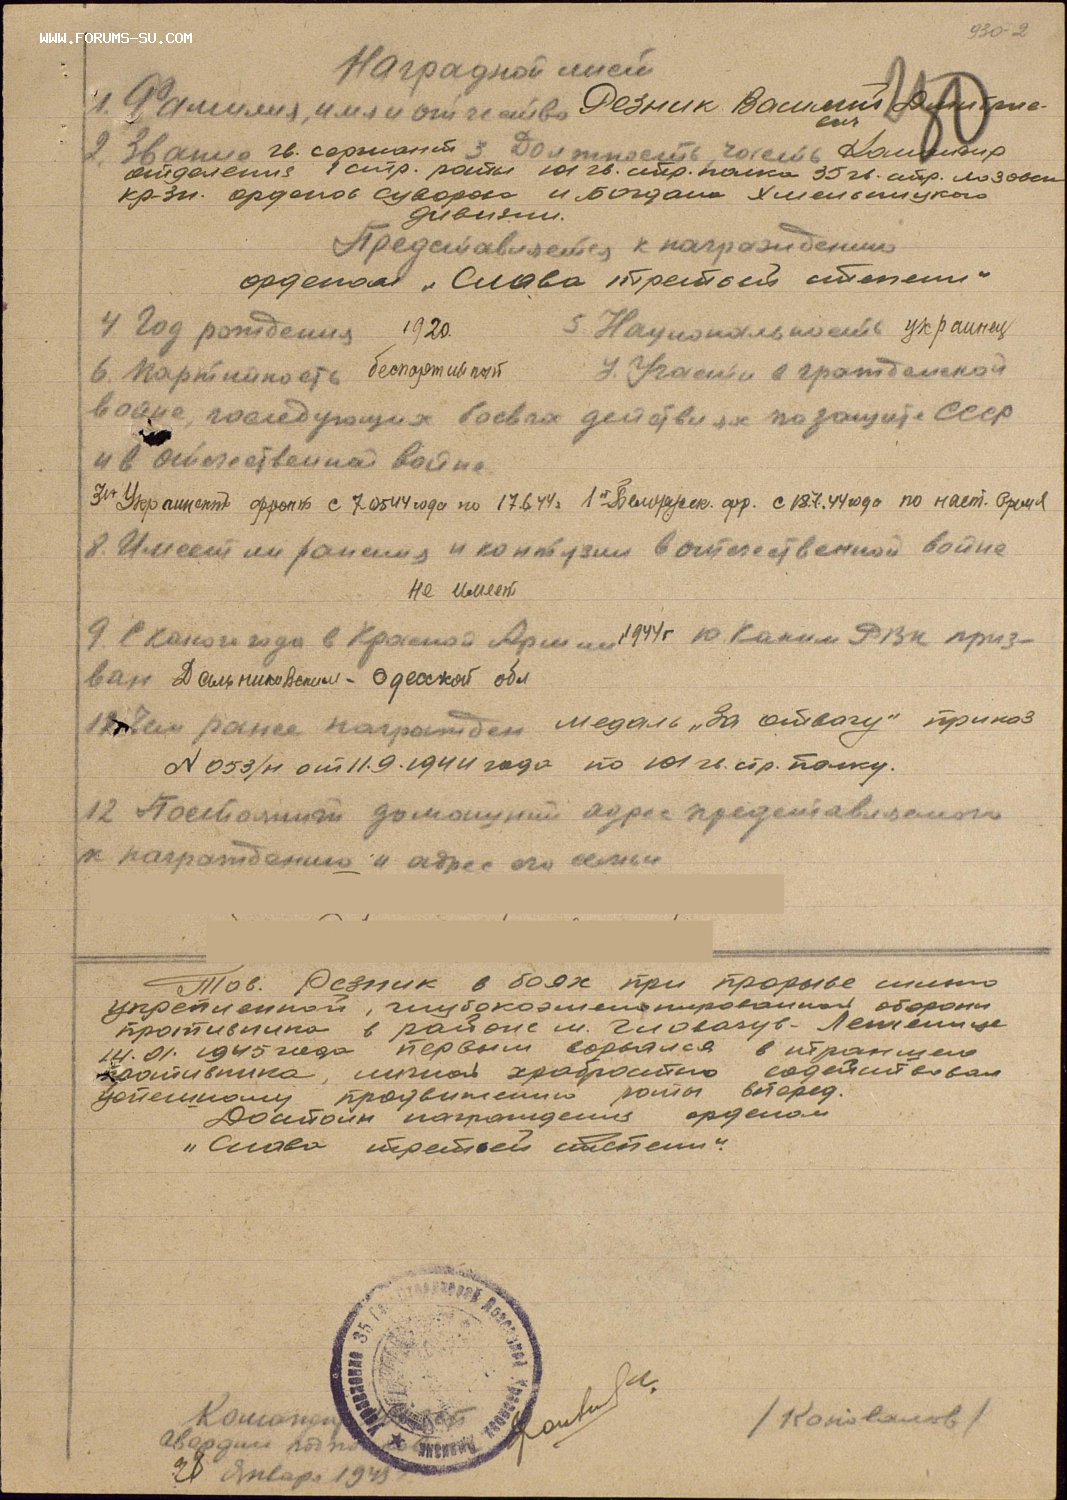 WWW.FORUMS-SU.COM
930-2
Наградной лист
1. Фамилия, имя и отчество Резник Василий Дмитрие-
вич
2. Звание гв. сержант 3 Должность, часть Командир
отделения 1 стр. роты 101 гв. стр. полка 35 гв. стр. лозовск
кр-зн. орденов Суворова и Богдана Хмельницкого
дивизии.
Представляется к награждению
орденом „Слава третьей степени"
4 Год рождения 1920. 5. Национальность украинец
6. Партийность беспартийный 7. Участие в гражданской
войне, последующих боевых действиях по защите СССР
и в отечественной войне.
3й Украинский фронт с 7.0544 года по 17.6.44г. 1й Белорусск. фр. с 18.7.44 года по наст. время
8. Имеет ли ранения и контузии в отечественной войне
не имеет
9. С какого года в Красной Армии 1944 г 10. Каким РВК приз-
ван Дальниковским - Одесской обл
11. Чем ранее награжден медаль „За отвагу" приказ
N 053/н от 11.9.1944 года по 101 гв. стр. полку.
12 Постоянный домашний адрес представляемого
к награждению и адрес его семьи
Тов. Резник в боях при прорыве сильно
укрепленной, глубокоэшелонированной обороны
противника в районе м. Гловачув - Леженице
14.01.1945 года первым ворвался в траншею
противника, личной храбростью содействовал
успешному продвижению роты вперед.
Достоин награждения орденом
„Слава третьей степени".
Управление 35 Гв. Стрелковой Лозовской Дивизии
Командир
Гвардии
28 Января 1945
/Коновалов/